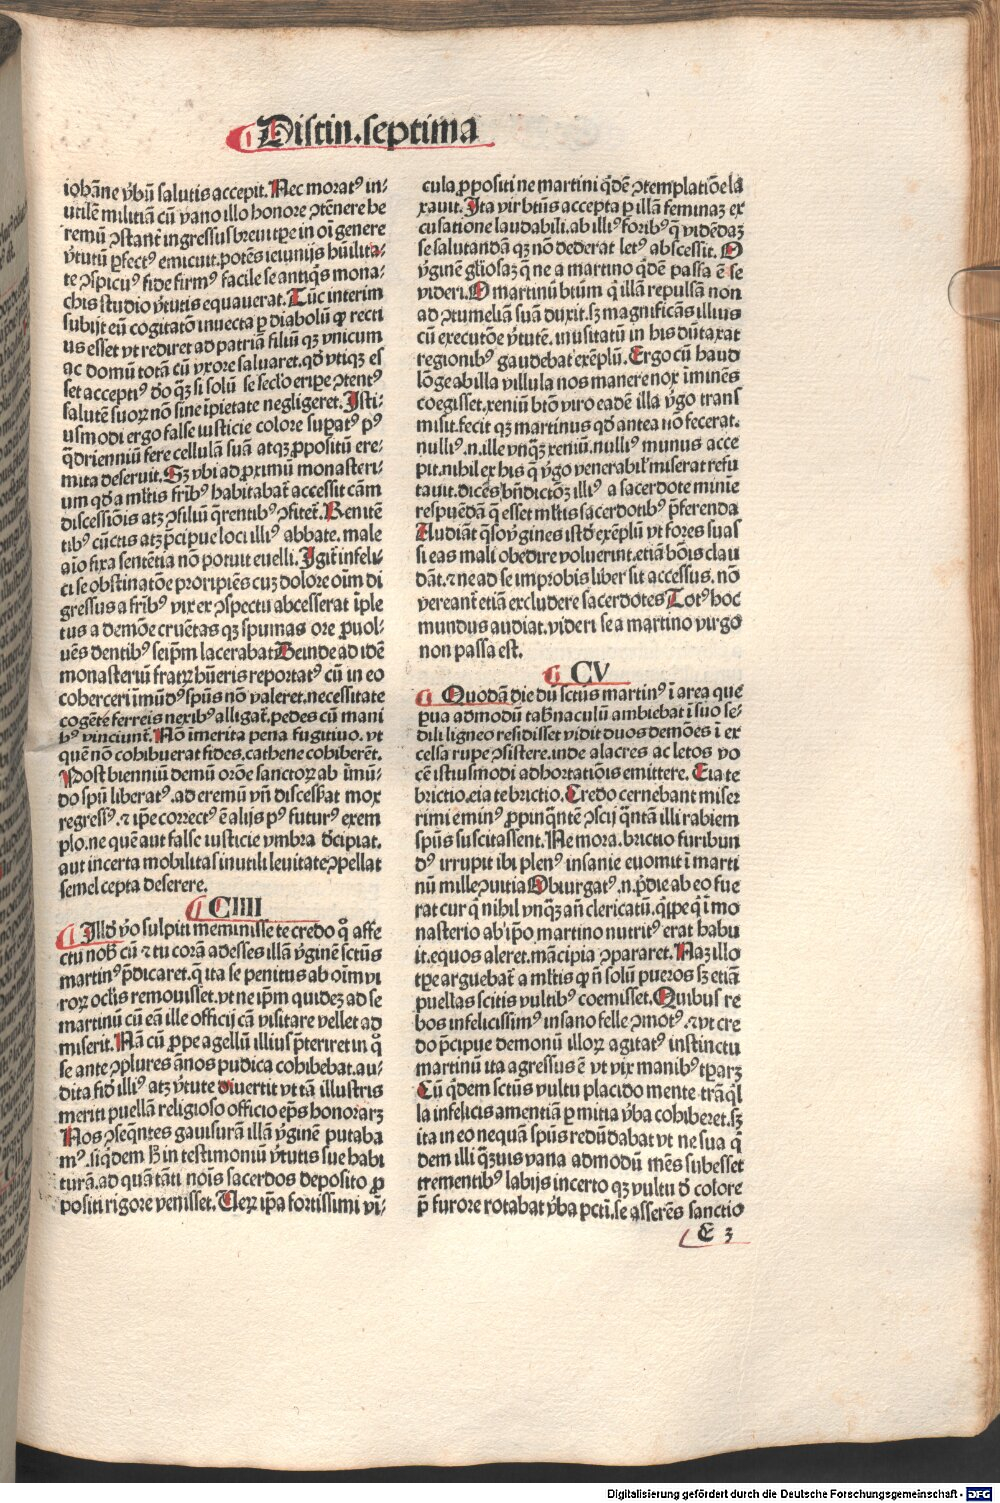 Distin.septima
iohāne v̄bū salutis accepit. Nec morat⁹ in-
utilē militiā cū vano illo honore ꝯtēnere he
remū ꝯstant̄ ingressus breui tp̄e in oī genere
v̄tutū ꝑfect⁹ emicuit. potēs ieiunijs hūilita-
te ꝯspicu⁹ fide firm⁹ facile se antiq̄s mona-
chis studio v̄tutis equauerat. Tūc interim
subijt eū cogitatō inuecta ꝑ diabolū ꝙ recti
us esset vt rediret ad patriā filiū qꝫ vnicum
ac domū totā cū vxore saluaret. qd̄ vtiqꝫ es
set accepti⁹ d̄o q̄ꝫ si solū se sec̄lo eripe ꝯtent⁹
salutē suoꝝ nō sine īpietate negligeret. Isti-
usmodi ergo false iusticie colore suꝑat⁹ p⁹
q̄driennīū fere cellulā suā atqꝫ ꝓpositū ere-
mita deseruit. Sꝫ vbi ad ꝓximū monasteri-
um qd̄ a ml̄tis frīb⁹ habitabat̄ accessit cām
discessiōis atꝫ ꝯsiliū q̄rentib⁹ ꝯfitet̄. Renitē
tib⁹ cūctis atꝫ p̄cipue loci illi⁹ abbate. male
aīo fixa sentētia nō potuit euelli. Igit̄ infeli-
ci se obstinatōe proripiēs cuꝫ dolore oīm di
gressus a frīb⁹ vix ex ꝯspectu abcesserat īple
tus a demōe cruētas qꝫ spumas ore ꝓuol-
uēs dentib⁹ seip̄m lacerabat Deinde ad idē
monasteriū fratꝝ hūeris reportat⁹ cū in eo
coherceri īmūd⁹ sp̄us nō valeret. necessitate
cogēte ferreis nexib⁹ alligat̄. pedes cū mani
b⁹ vinciunt̄. Nō īmerita pena fugitiuo. vt
quē nō cohibuerat fides. cathene cohiberēt.
Post bienniū demū orōe sanctoꝝ ab īmū-
do spū liberat⁹. ad eremū vn̄ discesserat mox
regress⁹. ⁊ ip̄e correct⁹ ē alijs p⁹ futur⁹ exem
plo. ne quē aut false iusticie vmbra d̄cipiat.
aut incerta mobilitas inutili leuitate ꝯpellat
semel cepta deserere.
CIIII
Illd̄ v̄o sulpiti meminisse te credo q̄ affe
ctu nob̄ cū ⁊ tu corā adesses illā v̄ginē sctūs
martin⁹ p̄dicaret. q̄ ita se penitus ab oīm vi
roꝝ ocl̄is remouisset. vt ne ip̄m quidez ad se
martinū cū eā ille officij cā visitare vellet ad
miserit. Nā cū ꝓpe agellū illius p̄teriret in q̊
se ante ꝯplures ānos pudica cohibebat. au-
dita fid̄ illi⁹ atꝫ v̄tute diuertit vt tā illustris
meriti puellā religioso officio ep̄s honoraꝝ
Nos ꝯseq̄ntes gauisurā illā v̄ginē putaba
m⁹. siq̄dem h̄ in testimoniū v̄tutis sue habi
turā. ad quā tāti noīs sacerdos deposito ꝓ
positi rigore venisset. Ueꝝ ip̄a fortissimi vī-
cula ꝓpositi ne martini q̄dē ꝯtemplatiōe la
xauit. Ita vir btūs accepta ꝑ illā feminaꝫ ex
cusatione laudabili. ab illi⁹ forib⁹ q̄ vidēdaꝫ
se salutandā qꝫ nō dederat let⁹ abscessit. O
v̄ginē gl̄iosaꝫ q̄ ne a martino q̄dē passa ē se
videri. O martinū btūm q̄ illā repulsā non
ad ꝯtumeliā suā duxit. sꝫ magnificās illius
cū execut̄ōe v̄tutē. inusitatū in his dūtaxat
regionib⁹ gaudebat exēplū. Ergo cū haud
lōge ab illa villula nos manere nox īminēs
coegisset. xeniū btō viro eadē illa v̄go trans
misit. fecit qꝫ martinus qd̄ antea nō fecerat.
nulli⁹. n. ille vnq̄ꝫ xeniū. nulli⁹ munus acce
pit. nihil ex his q̄ v̄go venerabil̄ miserat refu
tauit. dicēs bn̄dictōꝫ illi⁹ a sacerdote minīe
respuēdā q̄ esset ml̄tis sacerdotib⁹ p̄ferenda
Audiāt q̄so v̄gines istd̄ exēplū vt fores suas
si eas mali obedire voluerint. etiā bōis clau
dāt. ⁊ ne ad se improbis liber sit accessus. nō
vereant̄ etiā excludere sacerdotes Tot⁹ hoc
mundus audiat. videri se a martino virgo
non passa est.
CV
Quodā die dū sctūs martin⁹ ī area que
ꝑua admodū tab̄naculū ambiebat ī suo se-
dili ligneo residisset vidit duos demōes ī ex
celsa rupe ꝯsistere. inde alacres ac letos vo
cē istiusmodi adhortatiōis emittere. Eia te
brictio. eia te brictio. Credo cernebant miser
rimi emin⁹ ꝓpinq̄ntē ꝯscij q̄ntā illi rabiem
sp̄us suscitassent. Ne mora. brictio furibun
d⁹ irrupit ibi plen⁹ insanie euomit ī marti
nū mille ꝯuitia Obiurgat⁹. n. p̄die ab eo fue
rat cur q̄ nihil vnq̄ꝫ an̄ clericatū. q̄ppe q̄ ī mo
nasterio ab īpo martino nutrit⁹ erat habu
it. equos aleret. mācipia ꝯpararet. Naꝫ illo
tp̄e arguebat̄ a ml̄tis ꝙ n̄ solū pueros sꝫ etiā
puellas scitis vultib⁹ coemisset. Quibus re
bos infelicissim⁹ insano felle ꝯmot⁹. ⁊ vt cre
do p̄cipue demonū illoꝝ agitat⁹ instinctu
martinū ita agressus ē vt vix manib⁹ tꝑarꝫ
Cū q̄dem sctūs vultu placido mente trāq̄l
la infelicis amentiā ꝑ mitia v̄ba cohiberet. sꝫ
ita in eo nequā sp̄us redūdabat vt ne sua q̄
dem illi q̄ꝫuis vana admodū mēs subesset
trementib⁹ labijs incerto qꝫ vultu d̄ colore
p̄ furore rotabat v̄ba pcti. se asserēs sanctio
E 3
Digitalisierung gefördert durch die Deutsche Forschungsgemeinschaft - DFG